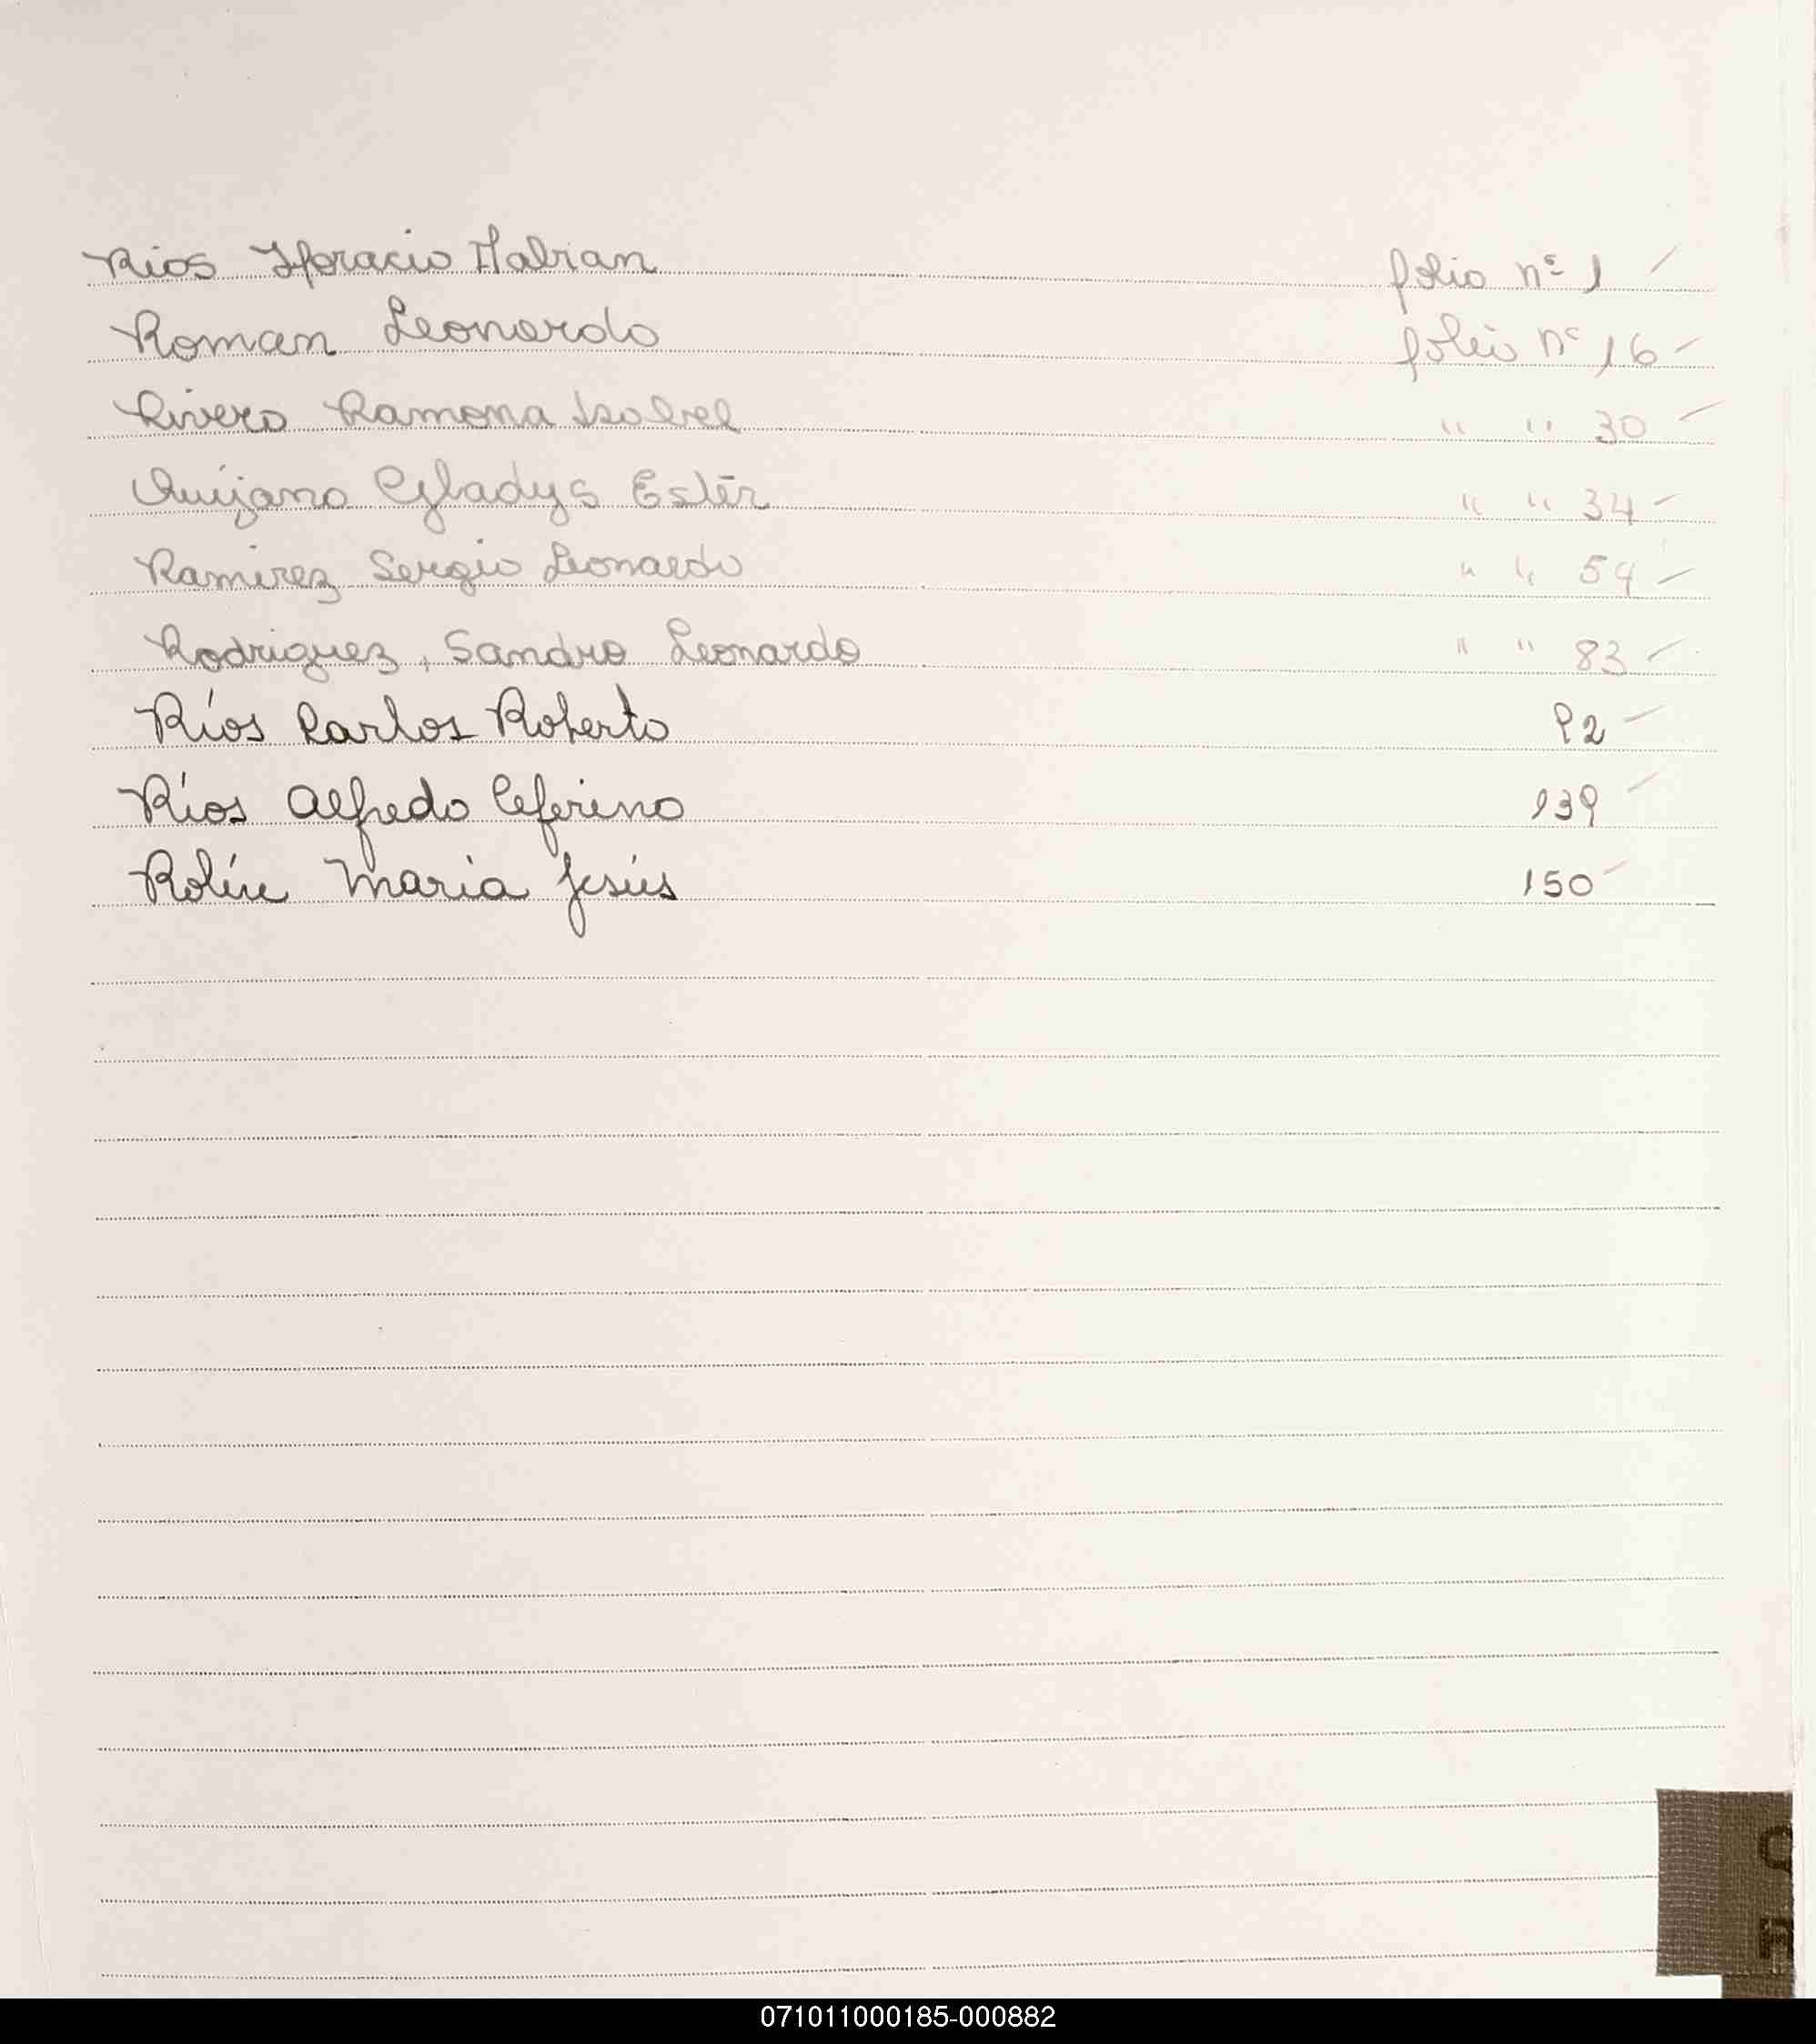 Rios Horacio Fabian folio nº 1
Roman Leonardo folio nº 16
Rivero Ramona Isabel " " 30
Quijano Gladys Estér " " 34
Ramirez Sergio Leonardo " " 59
Rodriguez, Sandro Leonardo " " 83
Ríos Carlos Roberto 92
Ríos Alfredo Ceferino 139
María Jesús 150
071011000185-000882